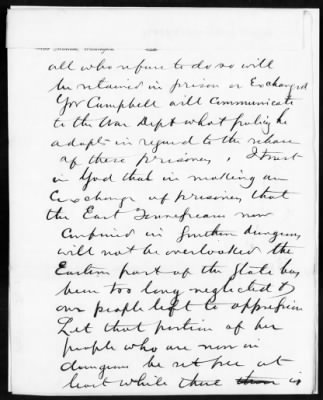 all who refuse to do so will
be retained in prison or Exchanged
Gov Campbell will Communicate
to the War Dept what policy he
adopts in regard to the release
of these prisoners, I trust
in God that in making an
Exchange of prisoners that
the East Tennesseeans now
Confined in Southern dungeons
will not be overlooked the
Eastern part of the State has
been too long neglected &
our people left to oppression
Let that portion of her
people who are now in
dungeons be set free at
least while there is